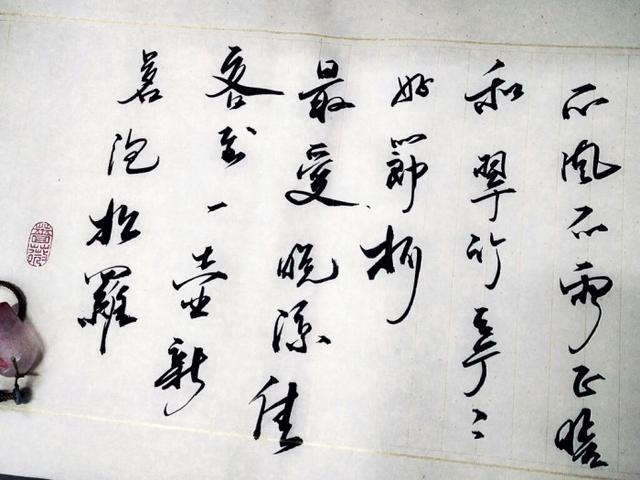 不風不雨正晴
和翠竹亭〻
好節柯
最愛晚涼佳
客至一壺新
茗泡松羅